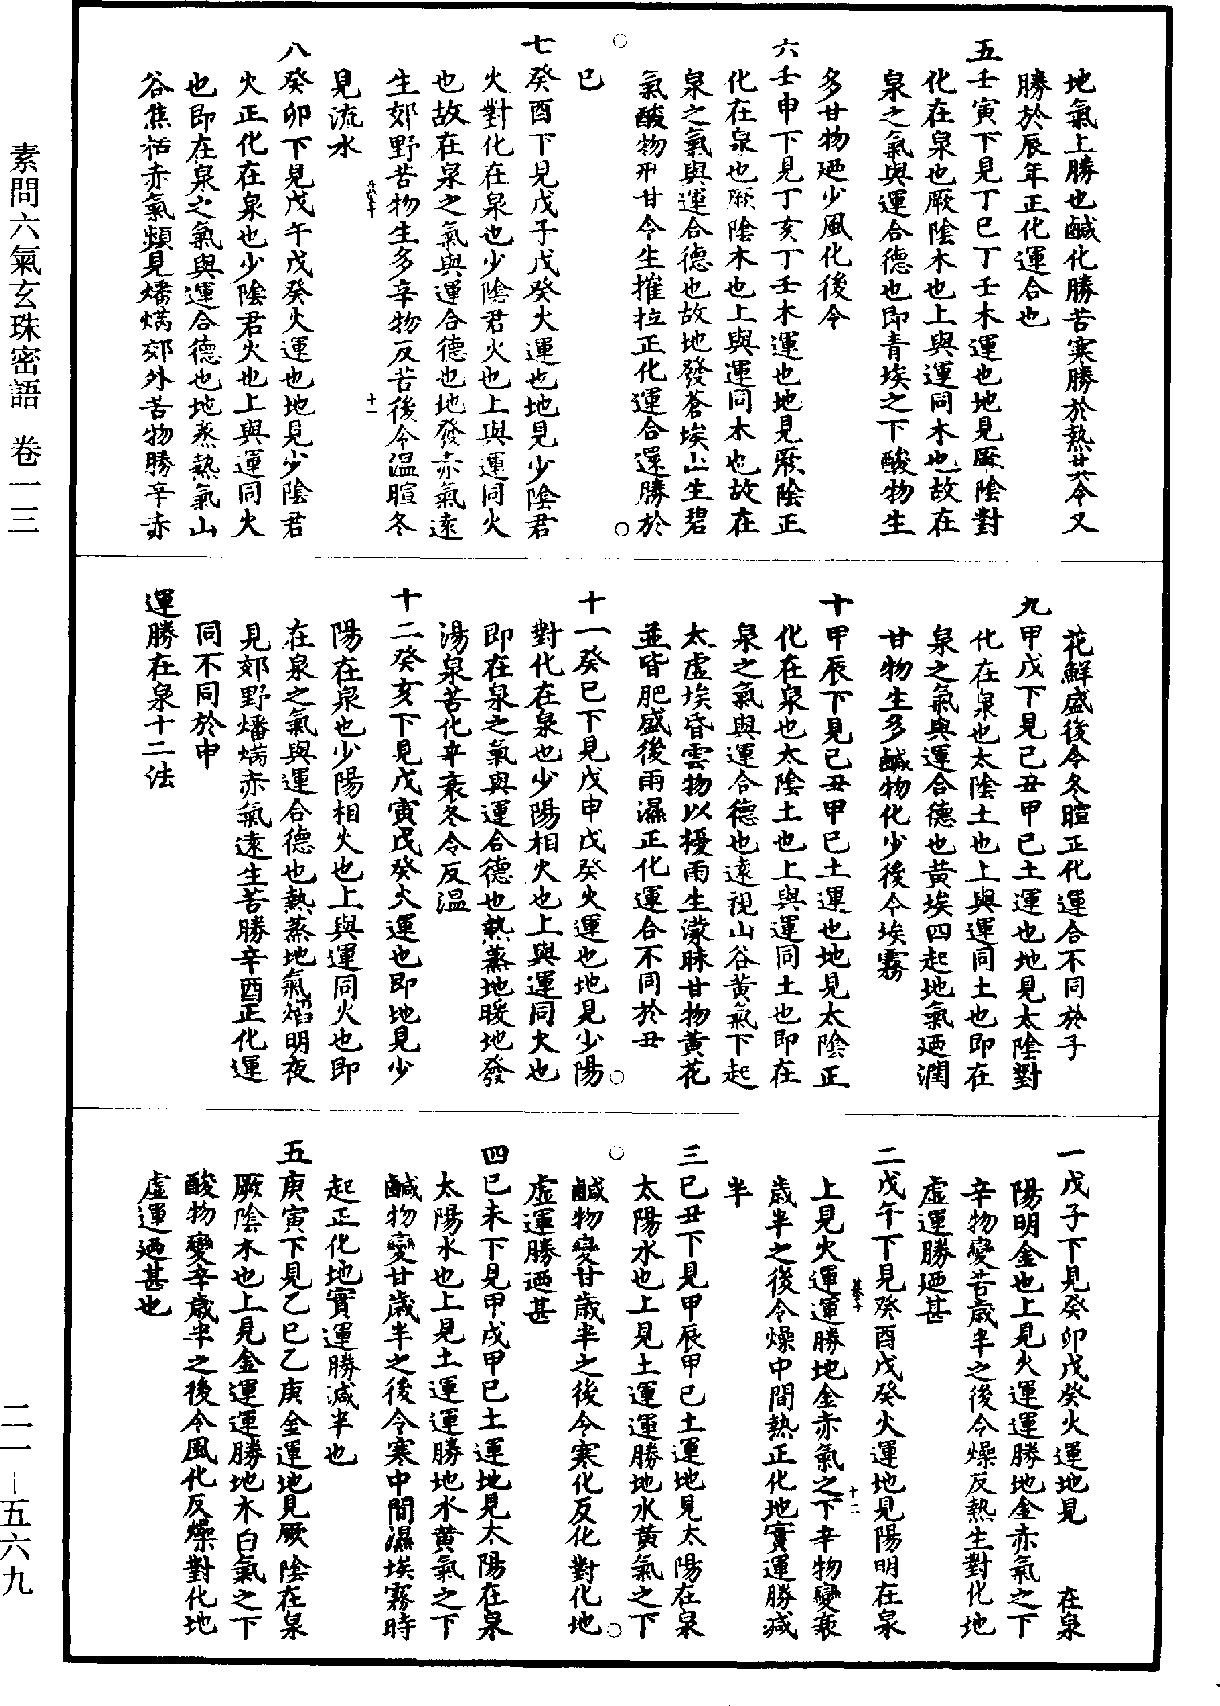 素問六氣玄珠密語 卷一三
地氣上勝也鹹化勝苦寒勝於熱廿六令又
勝於辰年正化運合也
五壬寅下見丁巳丁壬木運也地見厥陰對
化在泉也厥陰木也上與運同木也故在
泉之氣與運合德也即青埃之下酸物生
多甘物廼少風化後令
六壬申下見丁亥丁壬木運也地見厥陰正
化在泉也厥陰木也上與運同木也故在
泉之氣與運合德也故地發蒼埃山生碧
氣酸物刑甘令生摧拉正化運合運勝於
巳
七癸酉下見戊子戊癸火運也地見少陰君
火對化在泉也少陰君火也上與運同火
也故在泉之氣與運合德也地發赤氣遠
生郊野苦物生多辛物反苦後令溫暄冬
見流水
十一
八癸卯下見戊午戊癸火運也地見少陰君
火正化在泉也少陰君火也上與運同火
也即在泉之氣與運合德也地蒸熱氣山
谷焦枯赤氣頻見燔焫郊外苦物勝辛赤
花鮮盛後令冬暄正化運合不同於子
九甲戊下見己丑甲己土運也地見太陰對
化在泉也太陰土也上與運同土也即在
泉之氣與運合德也黃埃四起地氣廼潤
甘物生多鹹物化少後令埃霧
十甲辰下見己丑甲己土運也地見太陰正
化在泉也太陰土也上與運同土也即在
泉之氣與運合德也遠視山谷黃氣下起
太虛埃昏雲物以擾雨生濛昧甘物黃花
並皆肥盛後雨濕正化運合不同於丑
十一癸巳下見戊申戊癸火運也地見少陽
對化在泉也少陽相火也上與運同火也
即在泉之氣與運合德也熱蒸地暖地發
湯泉苦化辛衰冬令反溫
十二癸亥下見戊寅戊癸火運也即地見少
陽在泉也少陽相火也上與運同火也即
在泉之氣與運合德也熱蒸地氣焰明夜
見郊野燔焫赤氣遠生苦勝辛酉正化運
同不同於申
運勝在泉十二法
一戊子下見癸卯戊癸火運地見 在泉
陽明金也上見火運運勝地金赤氣之下
辛物變苦歲半之後令燥反熱生對化地
虛運勝廼甚
二戊午下見癸酉戊癸火運地見陽明在泉
上見火運運勝地金赤氣之下辛物變衰
十二
歲半之後令燥中間熱正化地實運勝減
半
三己丑下見甲辰甲己土運地見太陽在泉
太陽水也上見土運運勝地水黃氣之下
鹹物變甘歲半之後令寒化反化對化地
虛運勝廼甚
四己未下見甲戌甲己土運地見太陽在泉
太陽水也上見土運運勝地水黃氣之下
鹹物變甘歲半之後令寒中間濕埃霧時
起正化地實運勝減半也
五庚寅下見乙巳乙庚金運地見厥陰在泉
厥陰木也上見金運運勝地木白氣之下
酸物變辛歲半之後令風化反燥對化地
虛運廼甚也
二一－五六九